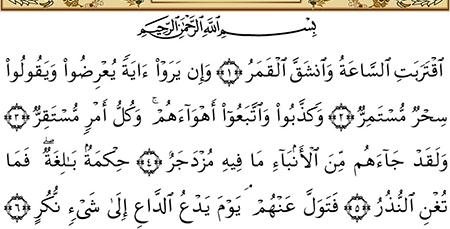 بِسْمِ ٱللَّهِ ٱلرَّحْمَٰنِ ٱلرَّحِيمِ
ٱقْتَرَبَتِ ٱلسَّاعَةُ وَٱنشَقَّ ٱلْقَمَرُ ﴿١﴾ وَإِن يَرَوْا۟ ءَايَةً يُعْرِضُوا۟ وَيَقُولُوا۟
سِحْرٌ مُّسْتَمِرٌّ ﴿٢﴾ وَكَذَّبُوا۟ وَٱتَّبَعُوٓا۟ أَهْوَآءَهُمْ ۚ وَكُلُّ أَمْرٍ مُّسْتَقِرٌّ ﴿٣﴾
وَلَقَدْ جَآءَهُم مِّنَ ٱلْأَنۢبَآءِ مَا فِيهِ مُزْدَجَرٌ ﴿٤﴾ حِكْمَةٌۢ بَٰلِغَةٌ ۖ فَمَا
تُغْنِ ٱلنُّذُرُ ﴿٥﴾ فَتَوَلَّ عَنْهُمْ ۘ يَوْمَ يَدْعُ ٱلدَّاعِ إِلَىٰ شَىْءٍ نُّكُرٍ ﴿٦﴾